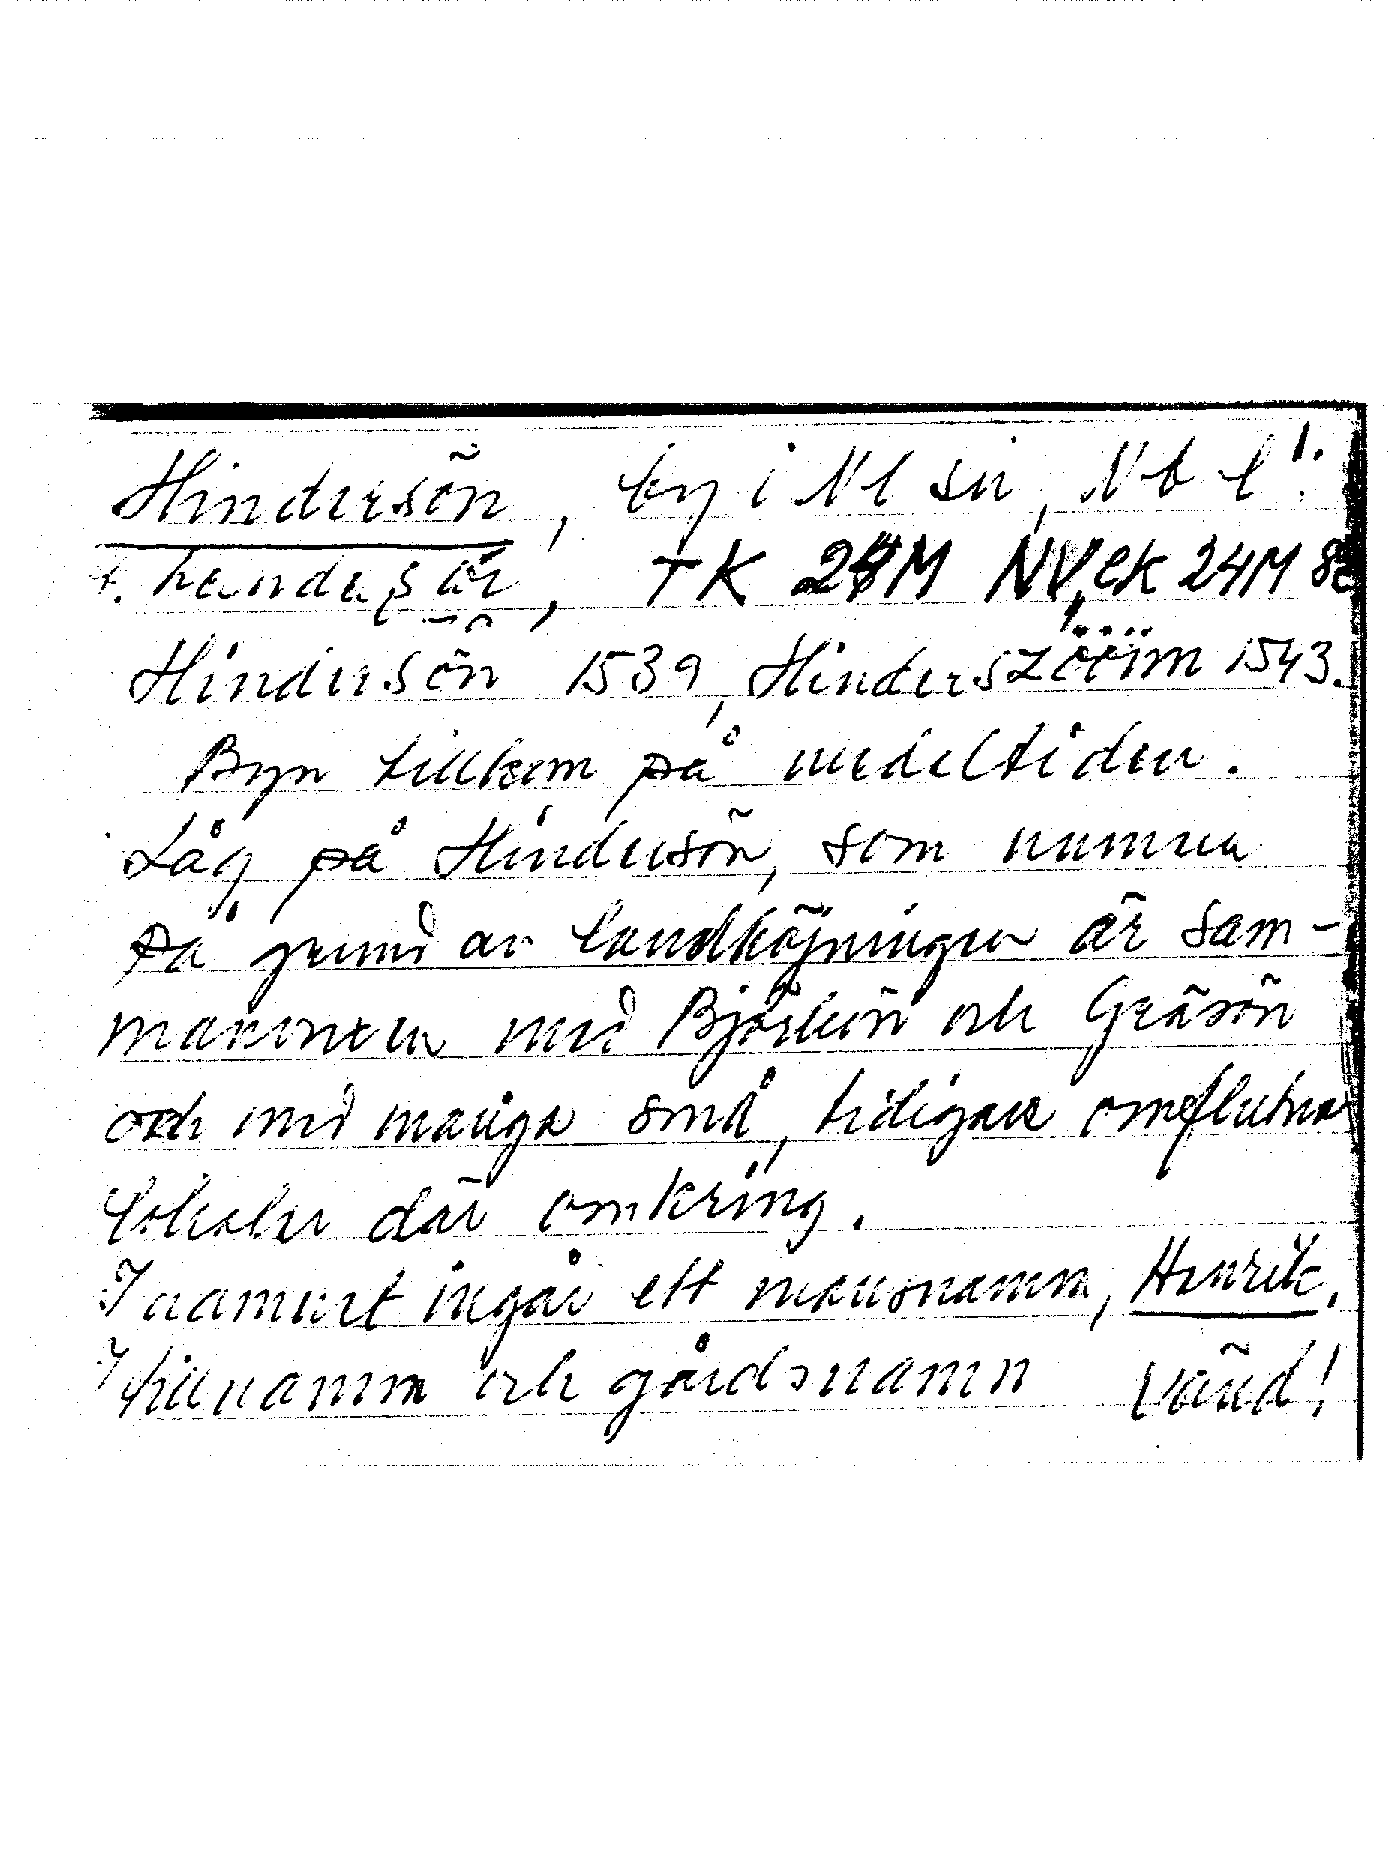 Hindersön, by i Nl sn, Nb l.
TK 24M NV, ek 24M 8
Hindersön 1539, Hinderszööim 1543.
Byn tillkom på medeltiden.
Låg på Hindersön, som numera
på grund av landhöjningen är sam-
manvuxen med Björkön och Gräsön
och med många små, tidigare omflutna
lokaler där omkring.
I namnet ingår ett mansnamn, Henrik.
I tillnamn och gårdsnamn Vänd!